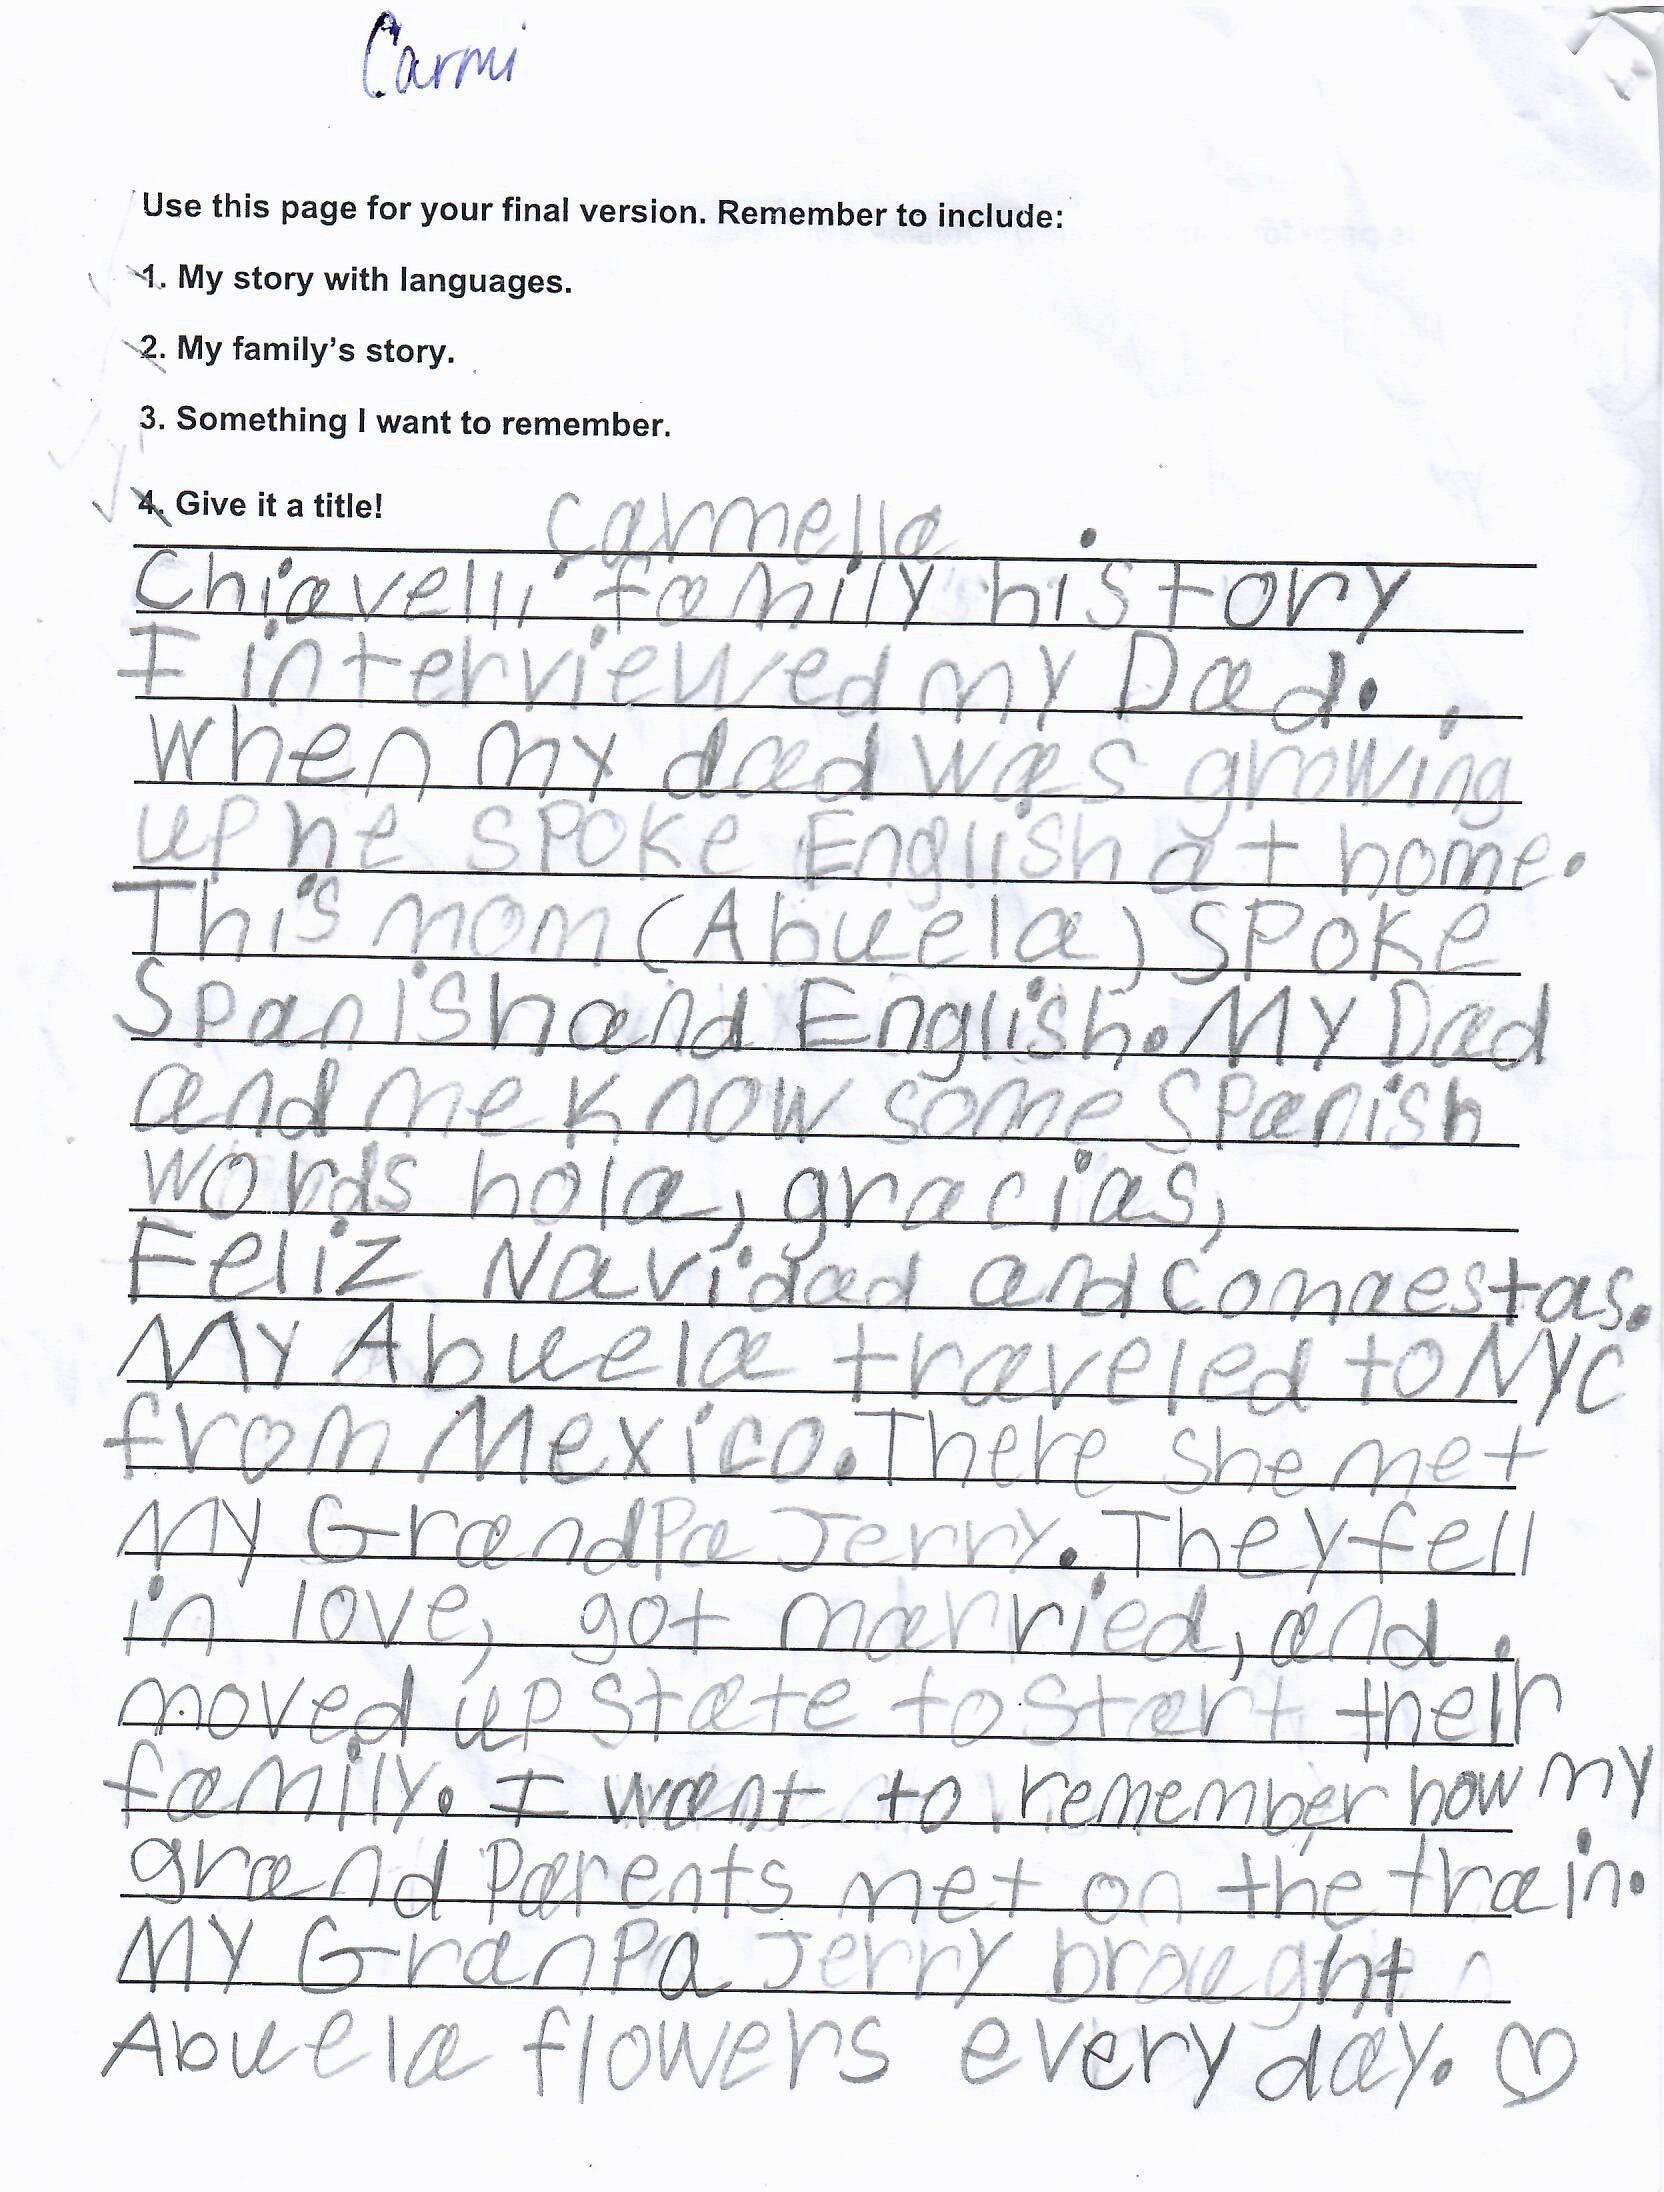 Carmi
Use this page for your final version. Remember to include:
1. My story with languages.
2. My family's story.
3. Something I want to remember.
4. Give it a title!
Carmella
Chiavelli family history
I interviewed my Dad.
When my dad was growing
up he spoke English at home.
This mom (Abuela) spoke
Spanish and English. My Dad
and me know some Spanish
words hola, gracias,
Feliz Navidad and comaestas.
My Abuela traveled to NYC
from Mexico. There she met
my Grandpa Jerry. They fell
in love, got married, and
moved up state to start their
family. I want to remember how my
grand parents met on the train.
My Granpa Jerry brought
Abuela flowers every day. ♡